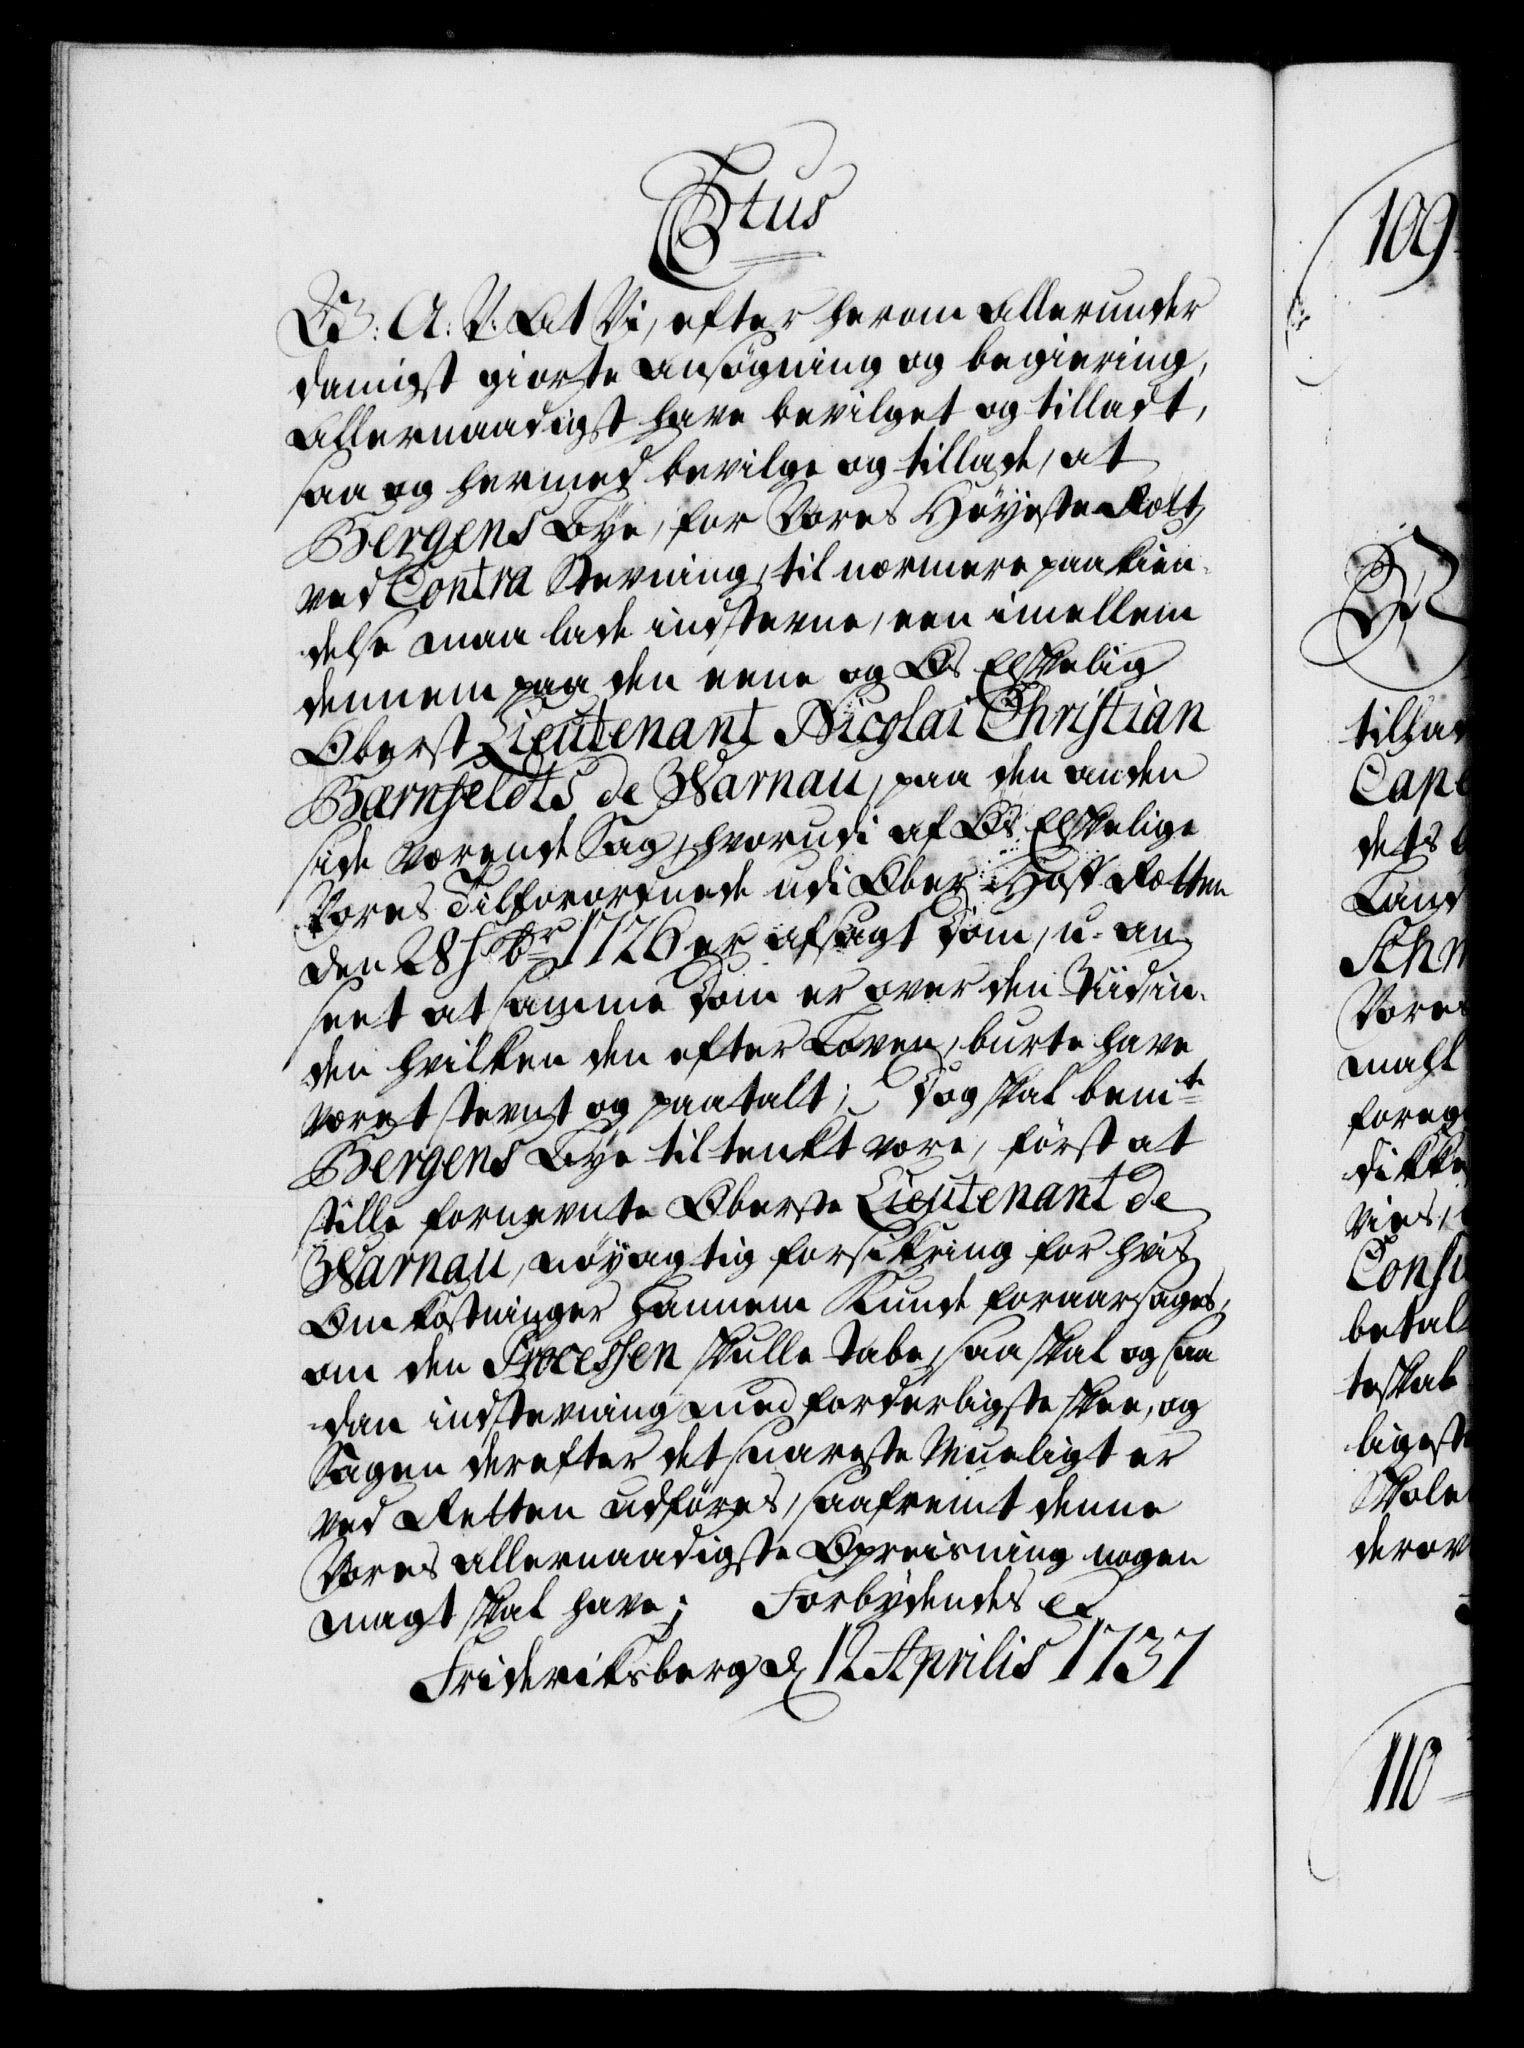 Stus
G: A: V: At Vi, efter herom allerunder
danigst giorte ansøgning og begiering,
allernaadigst have bevilget og tilladt,
saa og hermed bevilge og tillade, at
Bergens Bye, for Vores Høyeste Rætt,
ved Contra Stevning, til nærmere paakien-
delse maa lade indstevne, een imellem
dennem paa den eene og Os Elskelig
Oberst Lieutenant Nicolai Christian
Bærnfeldts de Warnau, paa den anden
side værende Sag, hvorudi af Os Elskelige
Vores Tilforordnede udi Ober-Hoff Rætten
den 28 7br 1726 er afsagt Dom, u-an-
seet at samme Dom er over den Tiid, in-
den hvilken den efter Loven, burte have
været stevnt og paatalt; Dog skal bemte
Bergens Bye tiltenkt være, først at
stille fornevnte Oberste Lieutenant de
Warnau, nøyagtig forsikring for hvis
Omkostninger hannem kunde foraarsages,
om den Processen skulle tabe, saa skal og saa
dan indstevning med forderligste skee, og
Sagen derefter det snareste Mueligt er
ved Retten udføres, saafremt denne
Vores allernaadigste Opreisning nogen
magt skal have; Forbydendes etc
Frideriksberg d 12 Aprilis 1737
109
tillad
Cap
dets
Land
Schm
Vores
mahl
foreg
dikke
Vies,
Consi
betal
teskab
ligeste
Skole
derov
110